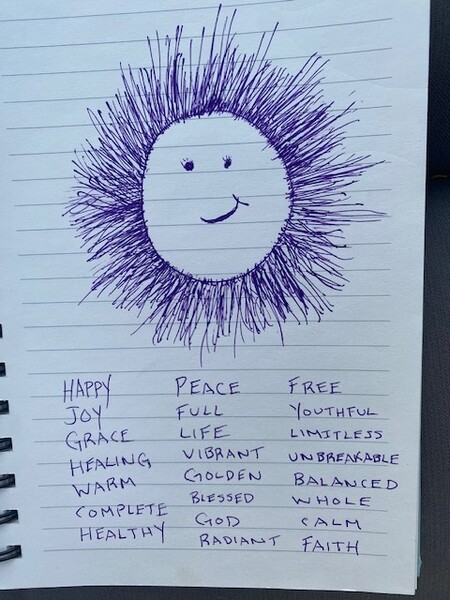 HAPPY PEACE FREE
JOY FULL YOUTHFUL
GRACE LIFE LIMITLESS
HEALING VIBRANT UNBREAKABLE
WARM GOLDEN BALANCED
COMPLETE BLESSED WHOLE
HEALTHY GOD CALM
RADIANT FAITH